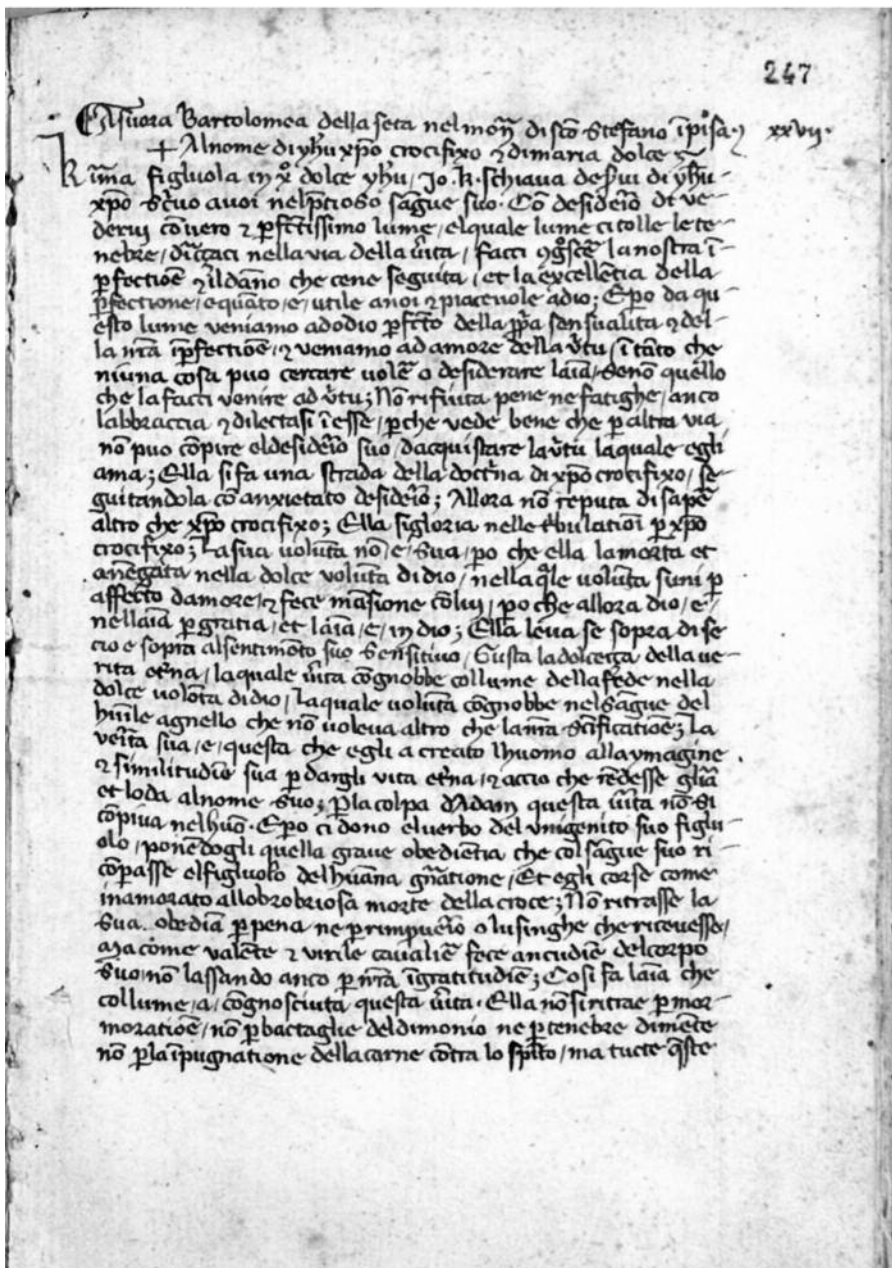 247
A suora Bartolomea della seta nel moñ di sc̃o Stefano ĩ pisa. xxvij.
+ Al nome di yhũ xp̃o crocifixo ⁊ di maria dolce
Kr̃ima figluola in xº dolce yhũ, Jo .K. schiava de s̃vi di yhũ
xp̃o Sc̃vo a voi nel p̃tioso sãgue suo. Cõ desiderĩo di ve-
dervi con vero ⁊ p̃fectissimo lume, el quale lume ci tolle le te-
nebre, diriççaci nella via della ṽita, facci ɔgños̃ce la nostra ĩ-
p̃fectiõe ⁊ il dãno che cene seguita, et la excellẽtia della
p̃fectione, e quãto, e, utile a noi ⁊ piacevole a dio; E p̃o da qu-
esto lume veniamo ad odio p̃fecto della pp̃a sensualita ⁊ del-
la nr̃a ĩp̃fectiõe, ⁊ veniamo ad amore della ṽtu, ĩ tãto che
niuna cosa puo cercare volẽ o desiderare lãia, se nõ quello
che la facci venire ad ṽtu; Nõ rifiuta pene ne fatighe, anco
labbraccia ⁊ dilectasi ĩ esse, p̃che vede bene che p̃ altra via
nõ puo cõpire el desiderĩo suo, dacquistare la ṽtu la quale egli
ama; Ella si fa una strada della doctr̃na di xp̃o crocifixo, se-
guitandola cõ anxietato desiderĩo; Allora nõ reputa di sapẽ
altro che xp̃o crocifixo; Ella si gloria nelle tr̃bulatioĩ p̃ xp̃o
crocifixo; La sua volũta nõ, e, Sua, p̃o che ella la morta et
ãnegata nella dolce volũta di dio, nella q̃le volũta suni p̃
affecto damore, ⁊ fece mãsione cõ lui, p̃o che allora dio, e,
nellãia p̃ gratia, et lãia, e, in dio; Ella leva se sopra di se
cio e sopra al sentimẽto suo Sensitivo, Gusta la dolceça della ve-
rita et̃na, la quale ṽita cõgnobbe col lume della fede nella
dolce volõta di dio, la quale volũta cõgnobbe nel sãgue del
hũile agnello che nõ voleva altro che la nr̃a sc̃ificatiõe; La
verĩta sua, e, questa che egli a creato lhuomo alla ymagine
⁊ similitudĩe sua p̃ dargli vita et̃na, ⁊ accio che rẽdesse glĩa
et loda al nome Suo; p̃ la colpa dAdam questa ṽita nõ Si
cõpiva nel huõ. E p̃o ci dono el verbo del unigenito suo figlu-
olo, ponẽdogli quella grave obediẽtia che col sãgue suo ri-
cõpasse el figluolo del humana gñatione, Et egli corse come
inamorato allobrobriosa morte della croce; Nõ ritrasse la
Sua obediã p̃ pena ne p̃ rimpverĩo o lusinghe che ricevesse,
Ma come valẽte ⁊ virile cavaliẽ fece ancudĩe del corpo
Suo, nõ lassando anco p̃ nr̃a ĩgratitudĩe; Cosi fa lãia che
col lume, a, cõgnosciuta questa ṽita. Ella nõ si ritrae p̃ mor-
moratiõe, nõ p̃ bactaglie del dimonio ne p̃ tenebre di mẽte
nõ p̃ la ĩpugnatione della carne cõtra lo sp̃ito, ma tucte q̃ste